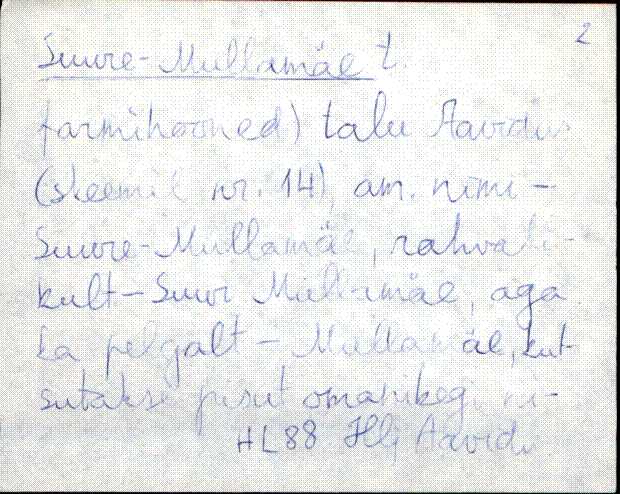 2
Suure-Mullamäe t.
farmihooned) talu Aavidus
(skeemil nr. 14), am. nimi -
Suure-Mullamäe, rahvali-
kult - Suur Mullamäe, aga
ka pelgalt - Mullamäe, kut-
sutakse pisut omanikeg
HL88 Aavidu